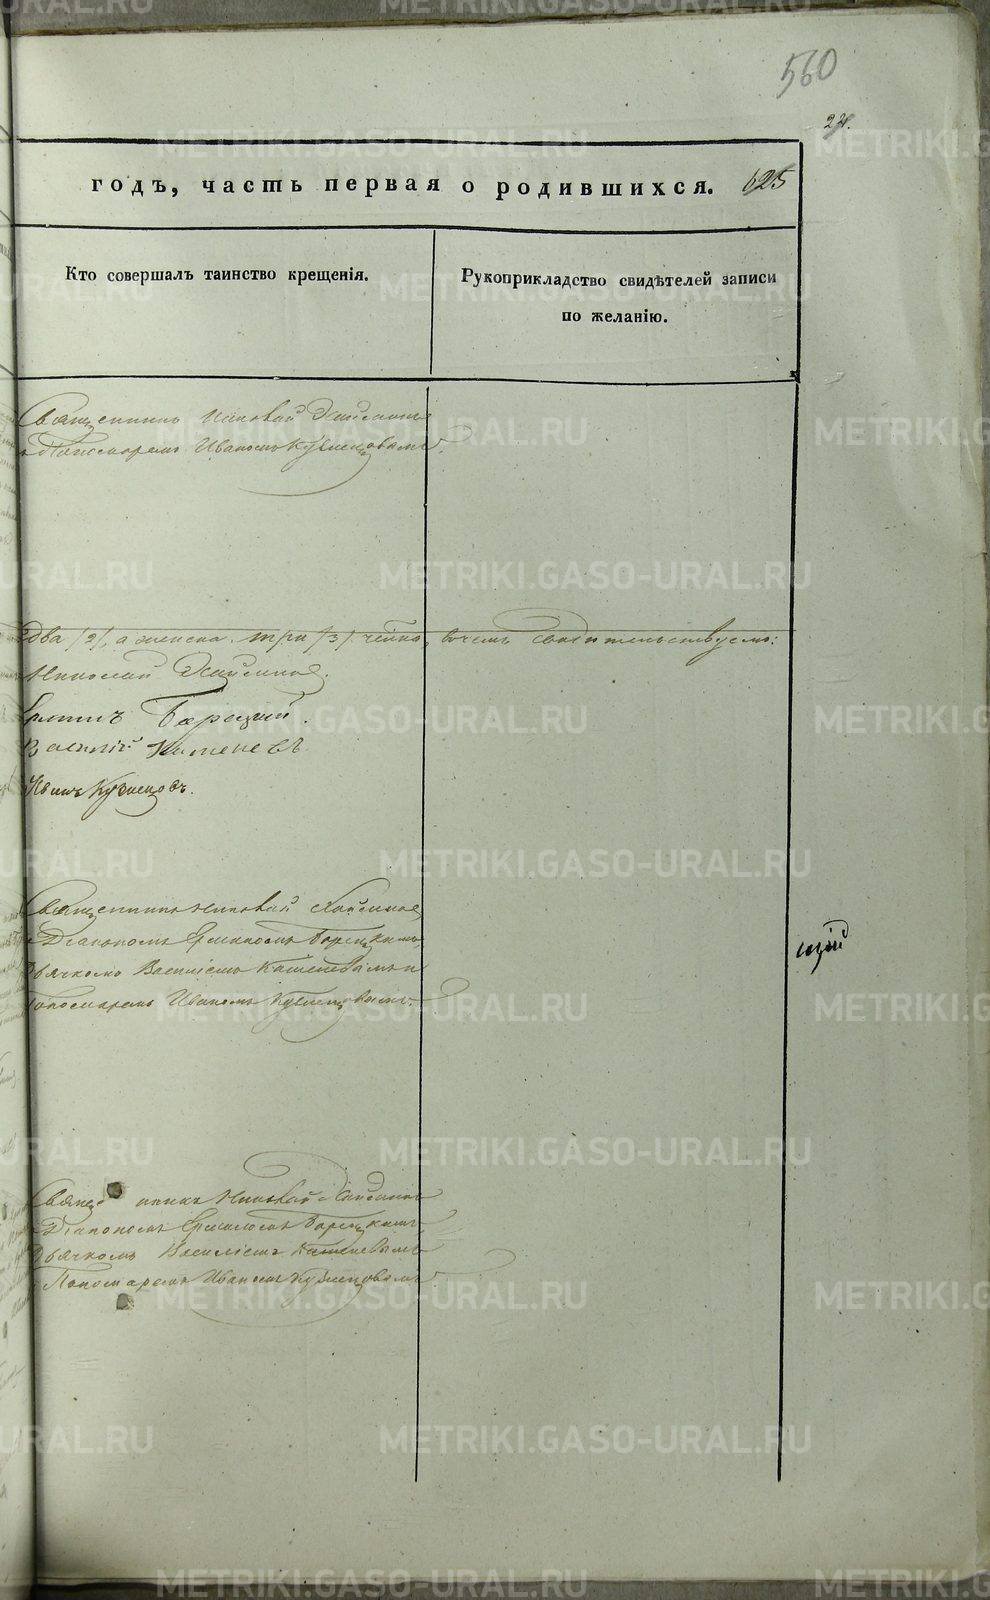 560
22.
годъ, часть первая о родившихся. 625
Кто совершалъ таинство крещенія.
Рукоприкладство свидѣтелей записи
по желанію.
Священникъ Николай
Пономаремъ Иваномъ Кузнецовымъ.
два /2/, а женска три /3/ в чемъ свидѣтельствуемъ:
Николай
Ермилъ Барецкий.
Василій Катеневъ
Иванъ Кузнецовъ.
Священникъ Николай
Діакономъ Ермиломъ Барецкимъ,
Дьячкомъ Василіемъ Катеневымъ и
Пономаремъ Иваномъ Кузнецовымъ.
цкій
Священникъ Николай
Діакономъ Ермиломъ Барецкимъ
Дьячкомъ Василіемъ Катеневымъ
Пономаремъ Иваномъ Кузнецовымъ.
METRIKI.GASO-URAL.RU